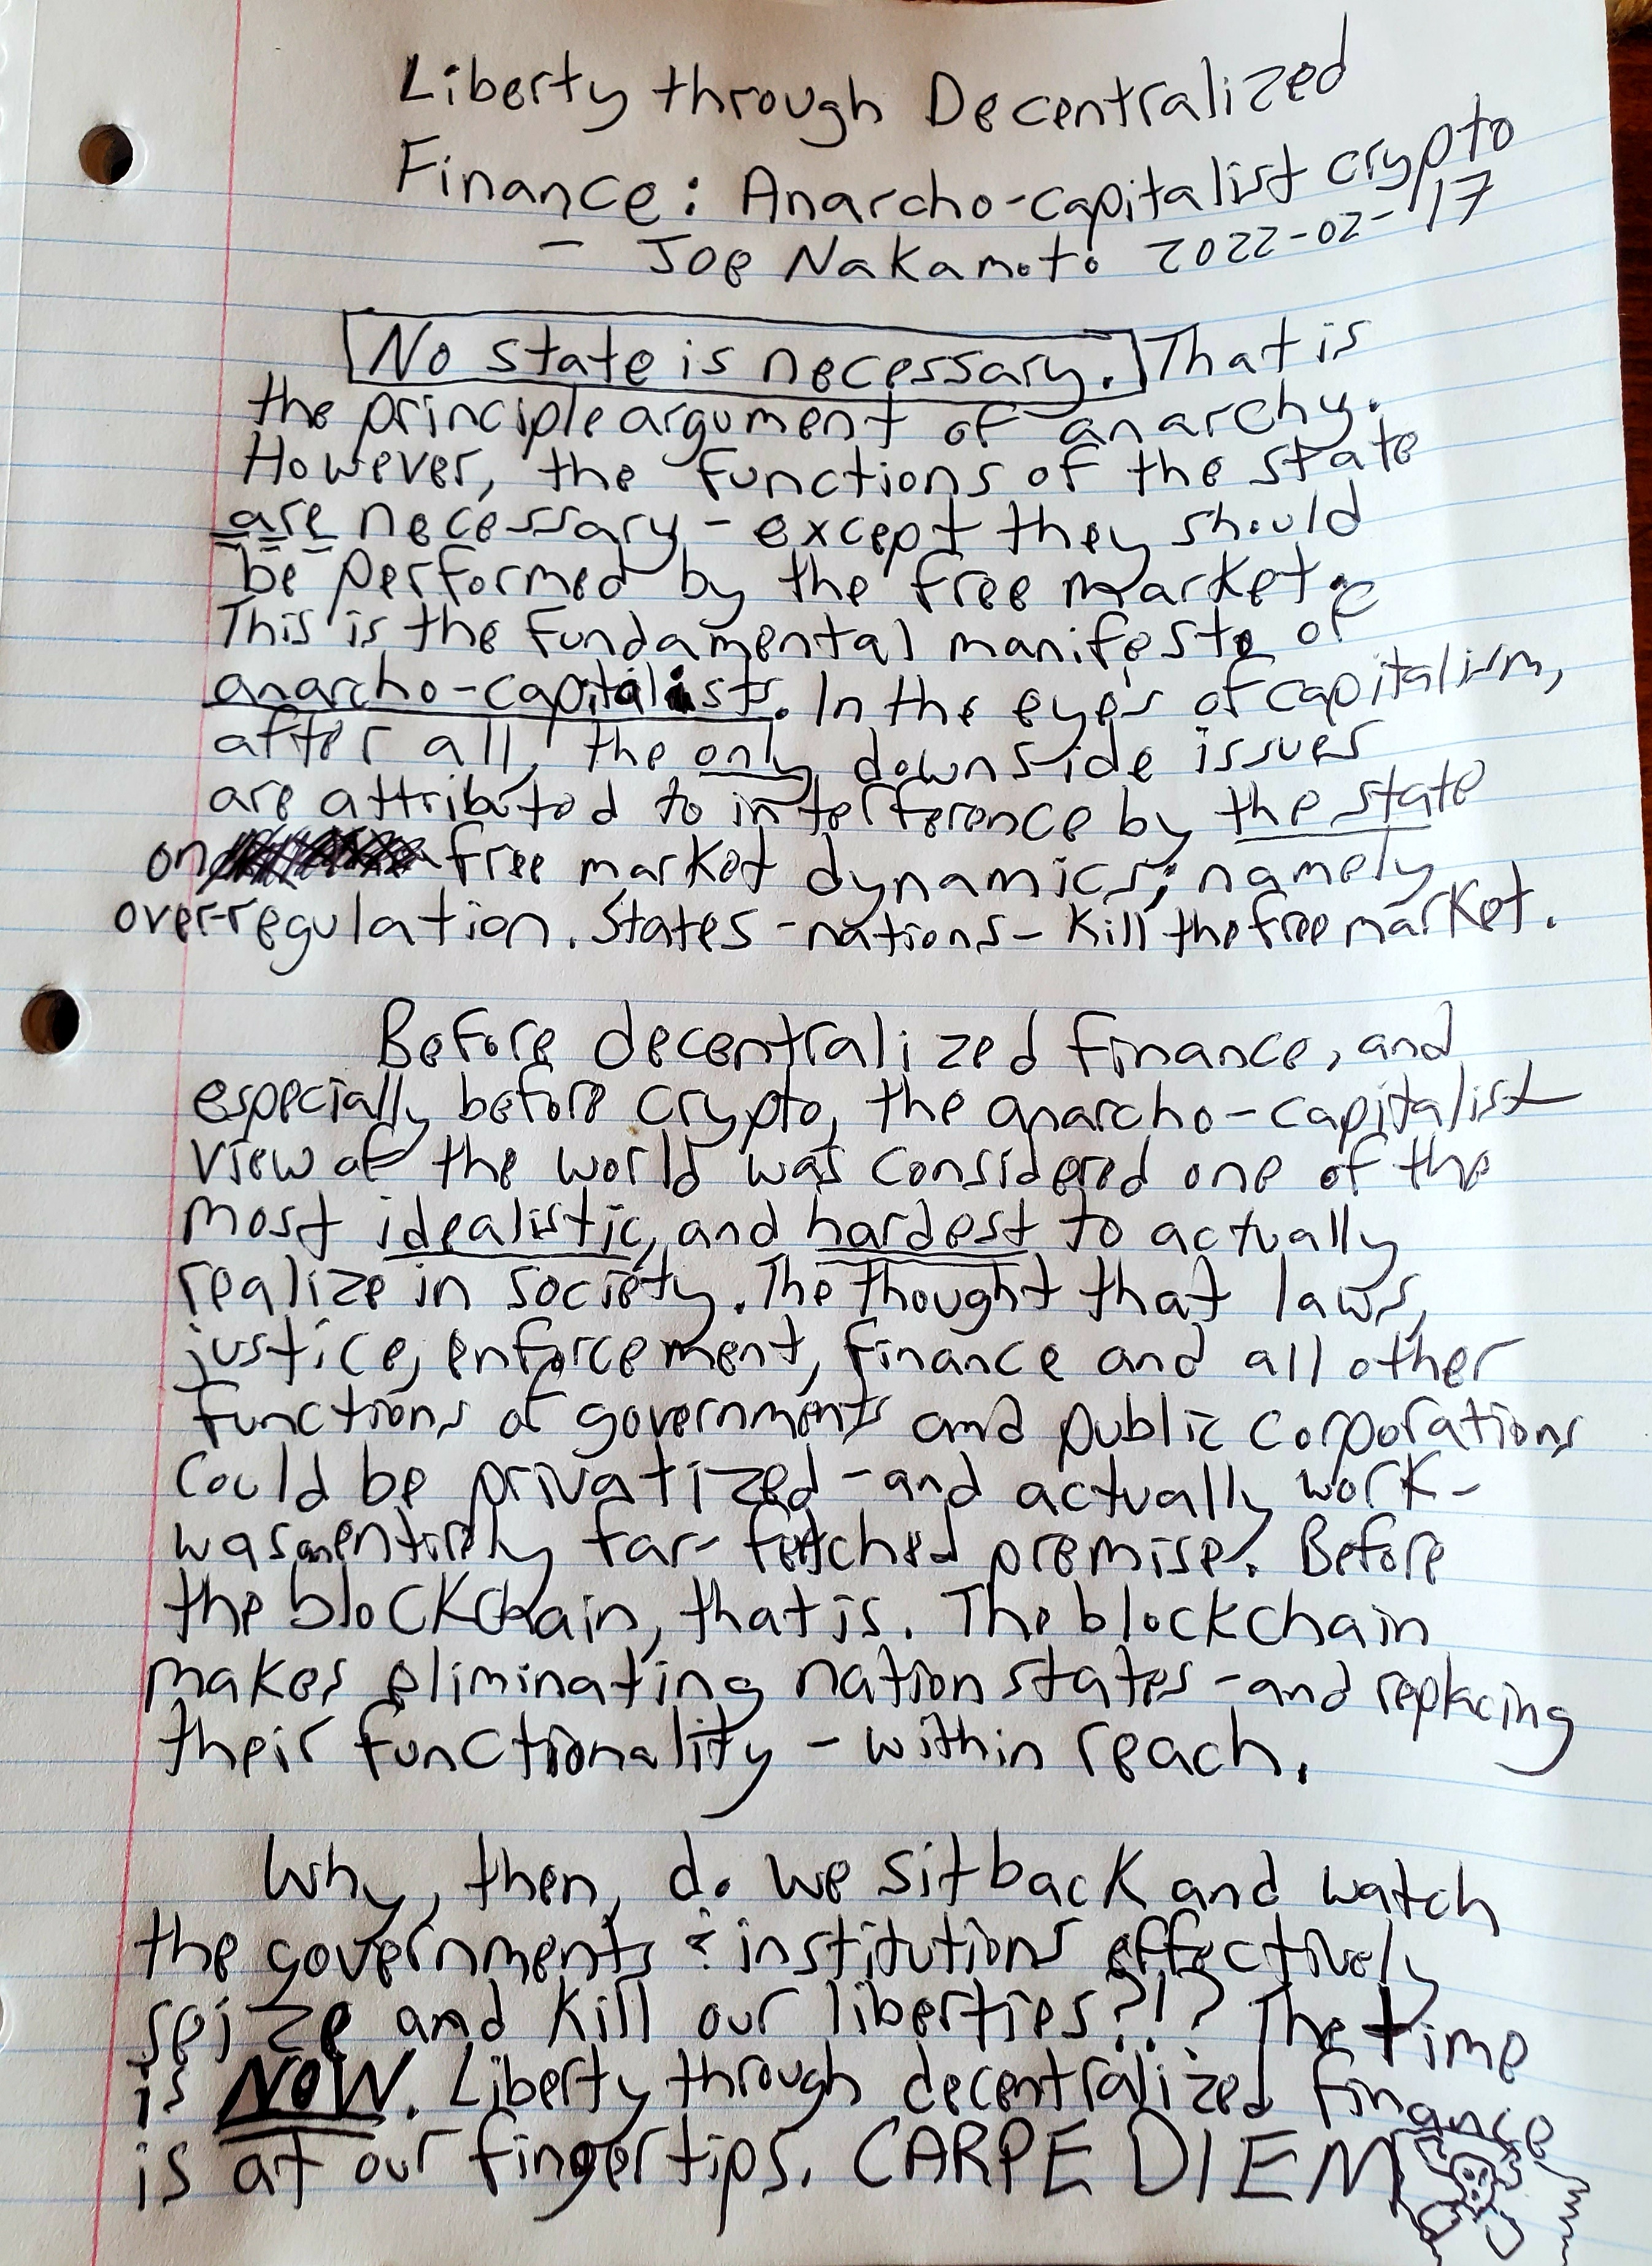 Liberty through Decentralized
Finance: Anarcho-capitalist crypto
- Joe Nakamoto 2022-02-17
No state is necessary. That is
the principle argument of anarchy.
However, the functions of the state
are necessary - except they should
be performed by the free market.
This is the fundamental manifesto of
anarcho-capitalists. In the eyes of capitalism,
after all, the only downside issues
are attributed to interference by the state
on free market dynamics; namely
over-regulation. States - nations - kill the free market.
Before decentralized finance, and
especially before crypto, the anarcho-capitalist
view of the world was considered one of the
most idealistic, and hardest to actually
realize in society. The thought that laws,
justice, enforcement, finance and all other
functions of governments and public corporations
could be privatized - and actually work -
was an entirely far-fetched premise. Before
the blockchain, that is. The blockchain
makes eliminating nation states - and replacing
their functionality - within reach.
Why, then, do we sit back and watch
the governments & institutions effectively
seize and kill our liberties?!? The time
is NOW. Liberty through decentralized finance
is at our fingertips. CARPE DIEM